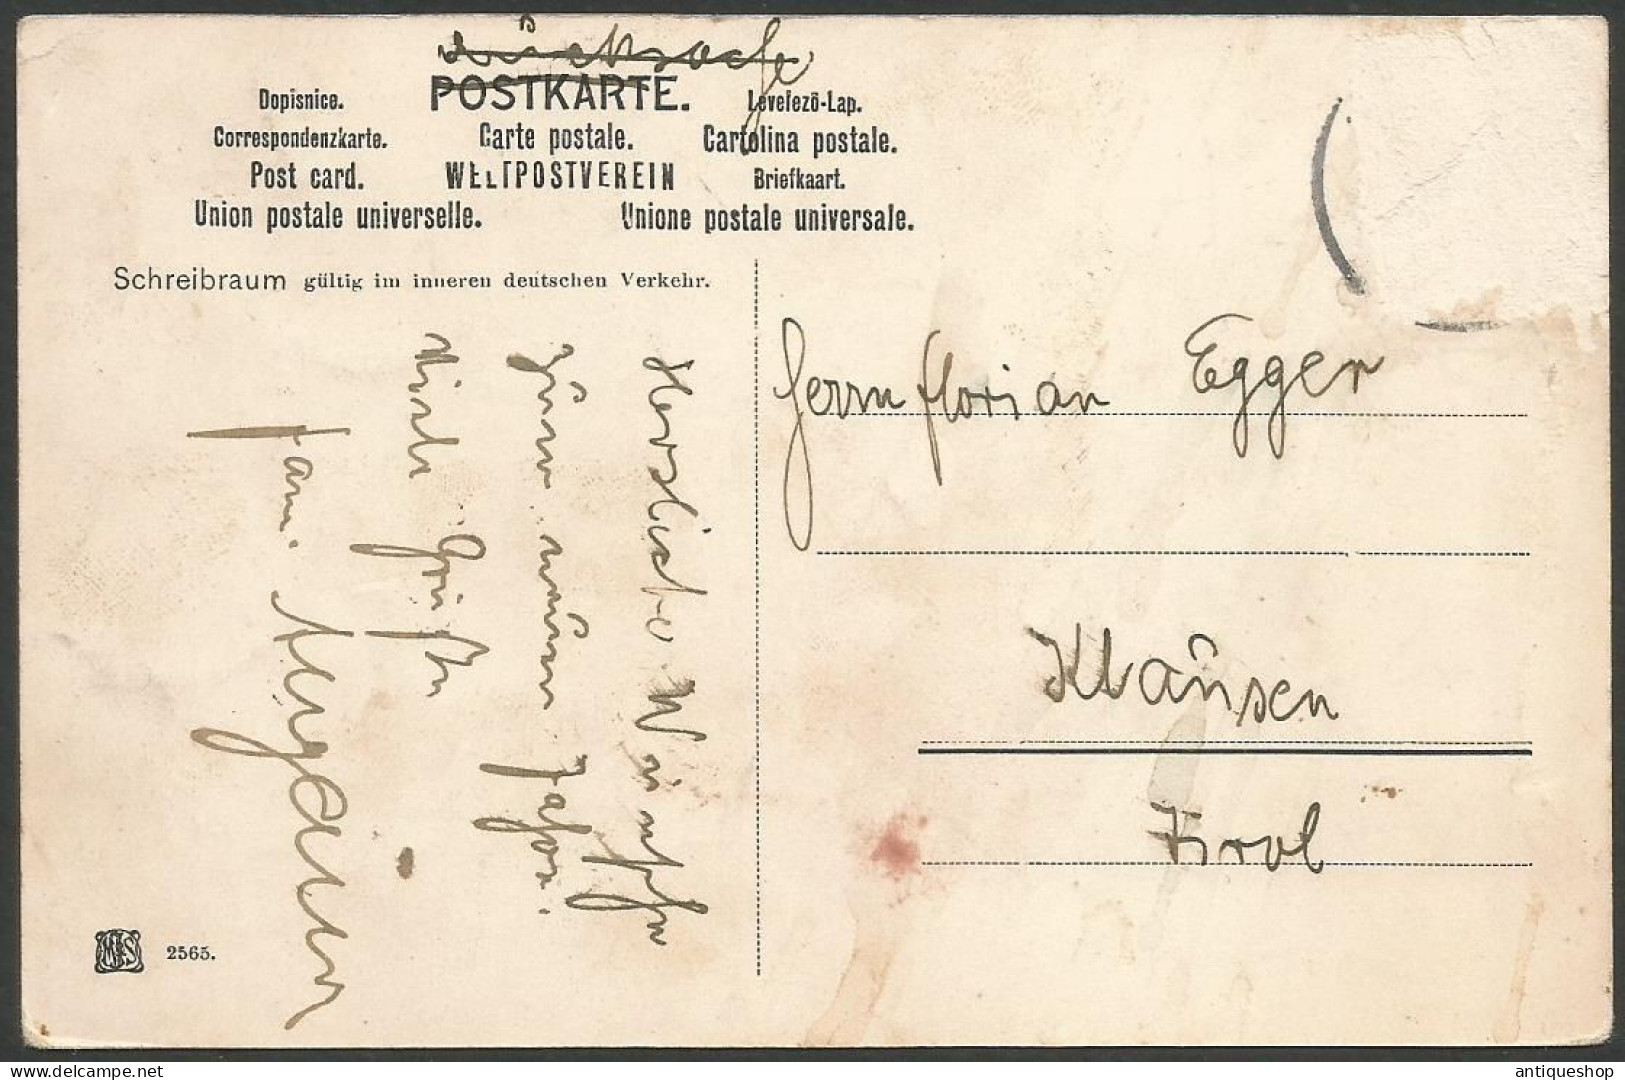 Drucksache
POSTKARTE.
Dopisnice.
Levelező-Lap.
Correspondenzkarte.
Carte postale.
Cartolina postale.
Post card.
WELTPOSTVEREIN
Briefkaart.
Union postale universelle.
Unione postale universale.
Schreibraum gültig im inneren deutschen Verkehr.
Herzlichste Wünsche
zum neuen Jahre.
Viele Grüße
Fam.
Herrn Florian Egger
Klausen
Tirol
M&S
2565.
delcampe.net
antiqueshop